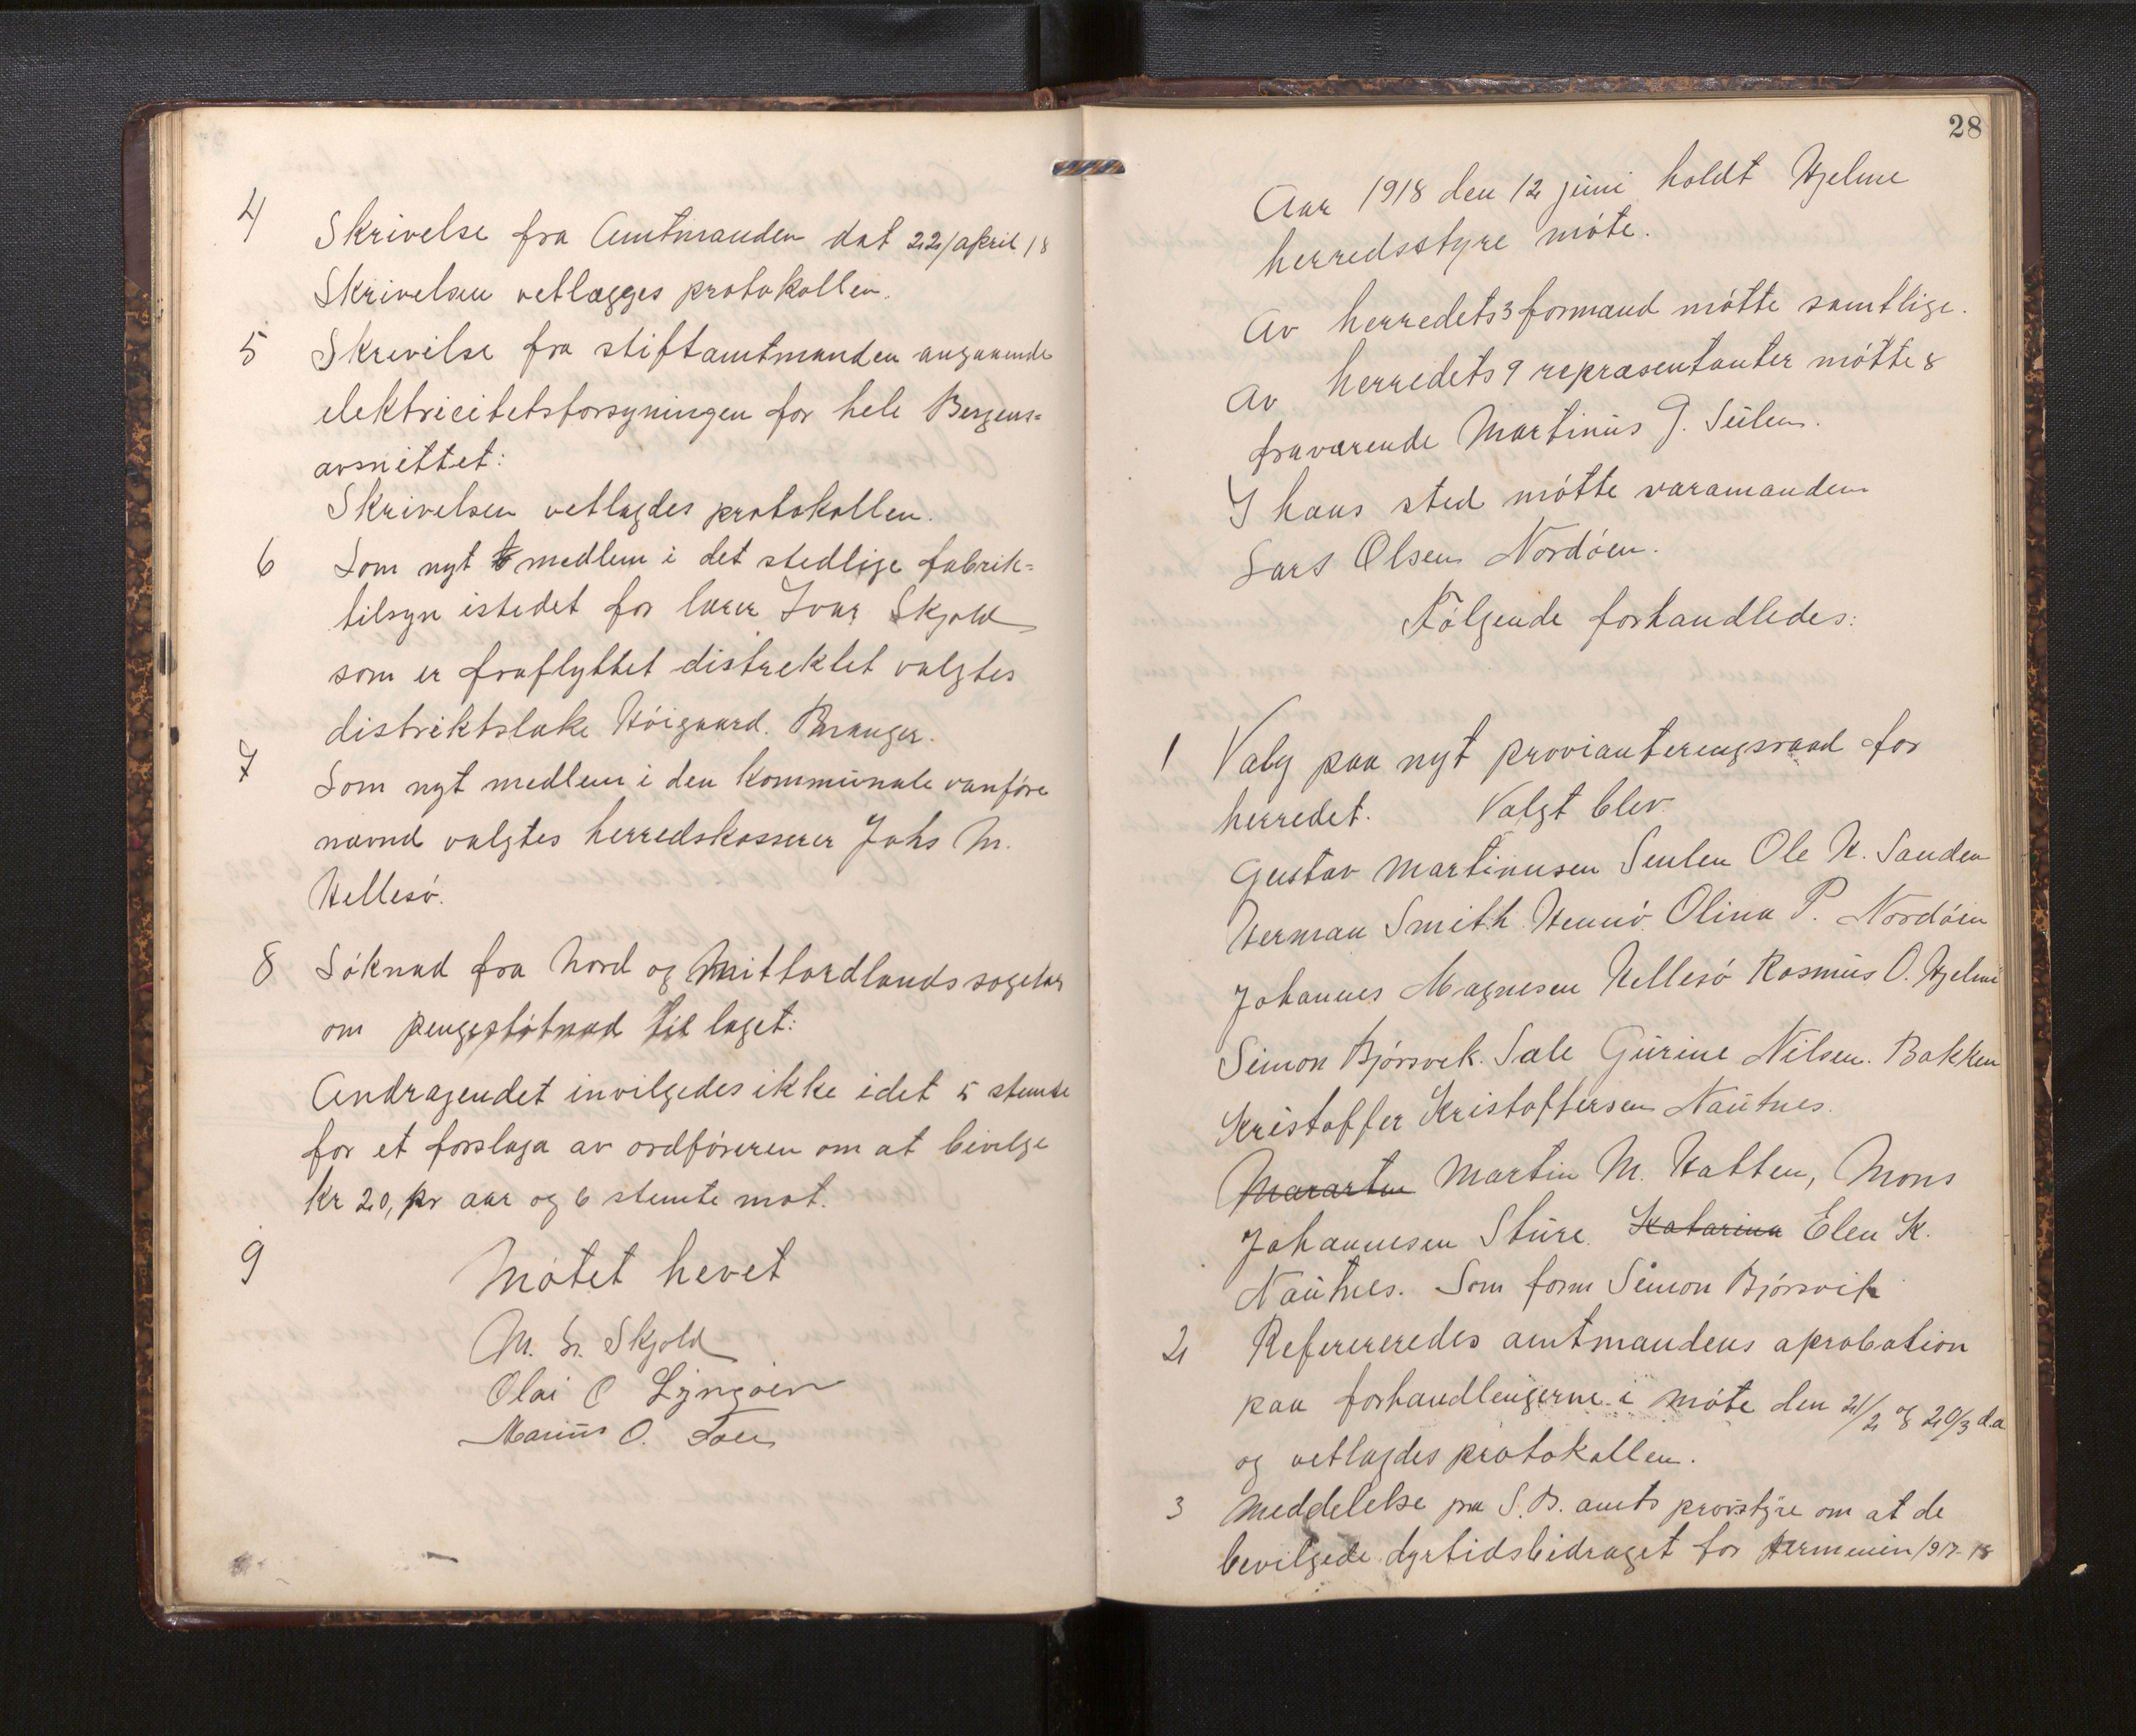 4 Skrivelse fra Amtmanden dat 22/april 18
Skrivelsen vetlægges protokollen.
5 Skrevilse fra stiftamtmanden angaaende
elektricitetsforsyningen for hele Bergens=
avsnittet:
Skrivelsen vetlagdes protokollen.
6 Som nyt medlem i det stedlige fabrik=
tilsyn istedet for lærer Ivar Skjold
som er fraflyttet distrektet valgtes
distriktslæke Höigaard. Manger.
7 Som nyt medlem i den kommunale vanföre
nævnd valgtes herredskasserer Johs M.
Hellesö.
8 Söknad fra Nord og Mithordlands sogelag
om pengestötnad til laget:
Andragendet invilgedes ikke idet 5 stemte
for et forslaga av ordföreren om at bevilge
kr 20, pr aar og 6 stemte mot.
9 Mötet hevet
M. H. Skjold
Olai C Lyngöien
Marius O.
28
Aar 1918 den 12 juni holdt Hjelme
herredsstyre möte.
Av herredets 3 formænd mötte samtlige.
Av herredets 9 repræsentanter mötte 8
fraværende Martinus G. Seilen.
I hans sted mötte varamanden
Lars Olsen Nordöen.
Fölgende forhandledes:
1 Valg paa nyt provianteringsraad for
herredet. Valgt blev
Gustav Martinusen Seulen Ole H. Sanden
Herman Smith Hennö Olina P. Nordöen
Johannes Magnesen Hellesö Rasmus O. Hjelme
Simon Bjórsvik. Sæle Gurine Nilsen. Bakken
Kristoffer Kristoffersen Nautnes.
Mararten Martin M. Hatten, Mons
Johannesen Sture. Katarina Elen K.
Nautnes. Som form Simon Bjórsvik
2 Refereredes amtmandens aprobation
paa forhandlingerne i möte den 21/2 og 20/3 d.a
og vetlagdes protokollen.
3 Meddelelse fra S. B. amts provstyre om at de
bevilgede dyrtidsbidraget for termenin 1917-18